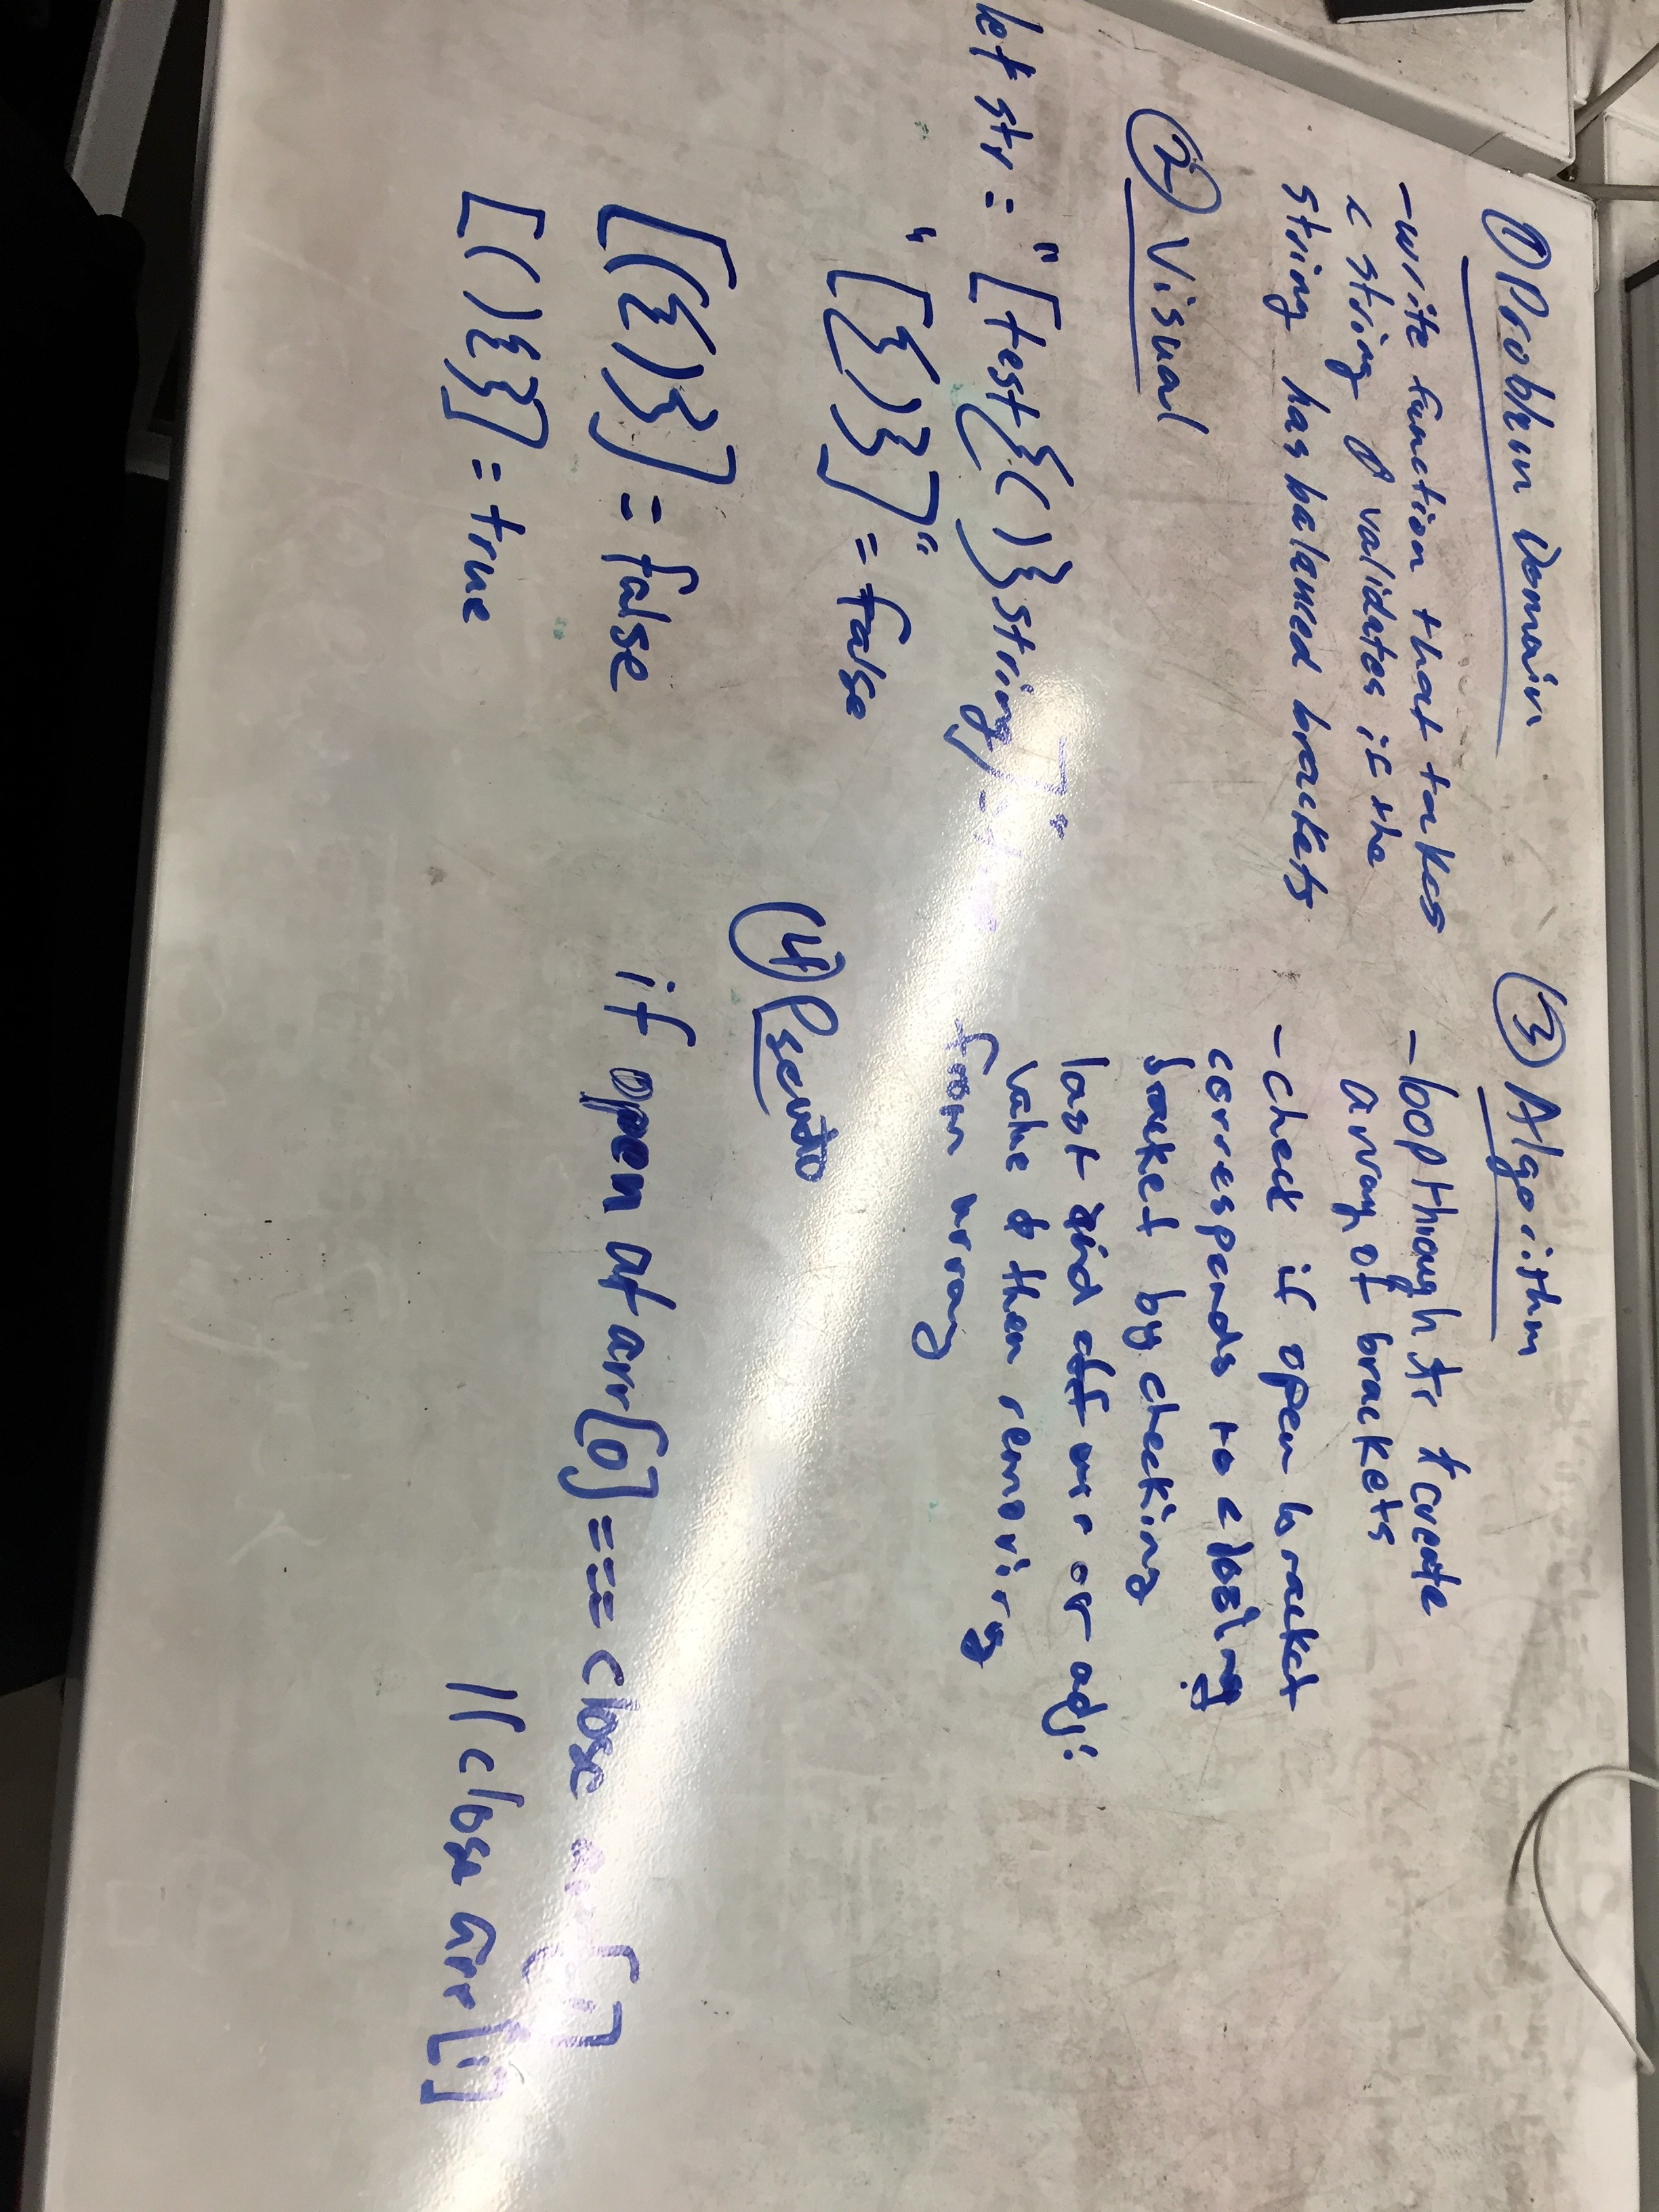 ① Problem Domain
- write function that takes
a string & validates if the
string has balanced brackets
② Visual
let str = "[test{()}string]"
"[{)}]" = false
[({)}] = false
[(){}] = true
③ Algorithm
- loop through str & create
array of brackets
- check if open bracket
corresponds to closing
bracket by checking
last ind of arr or adj.
value & then removing
from array
④ Pseudo
if open at arr[0] === close
|| close arr[1]